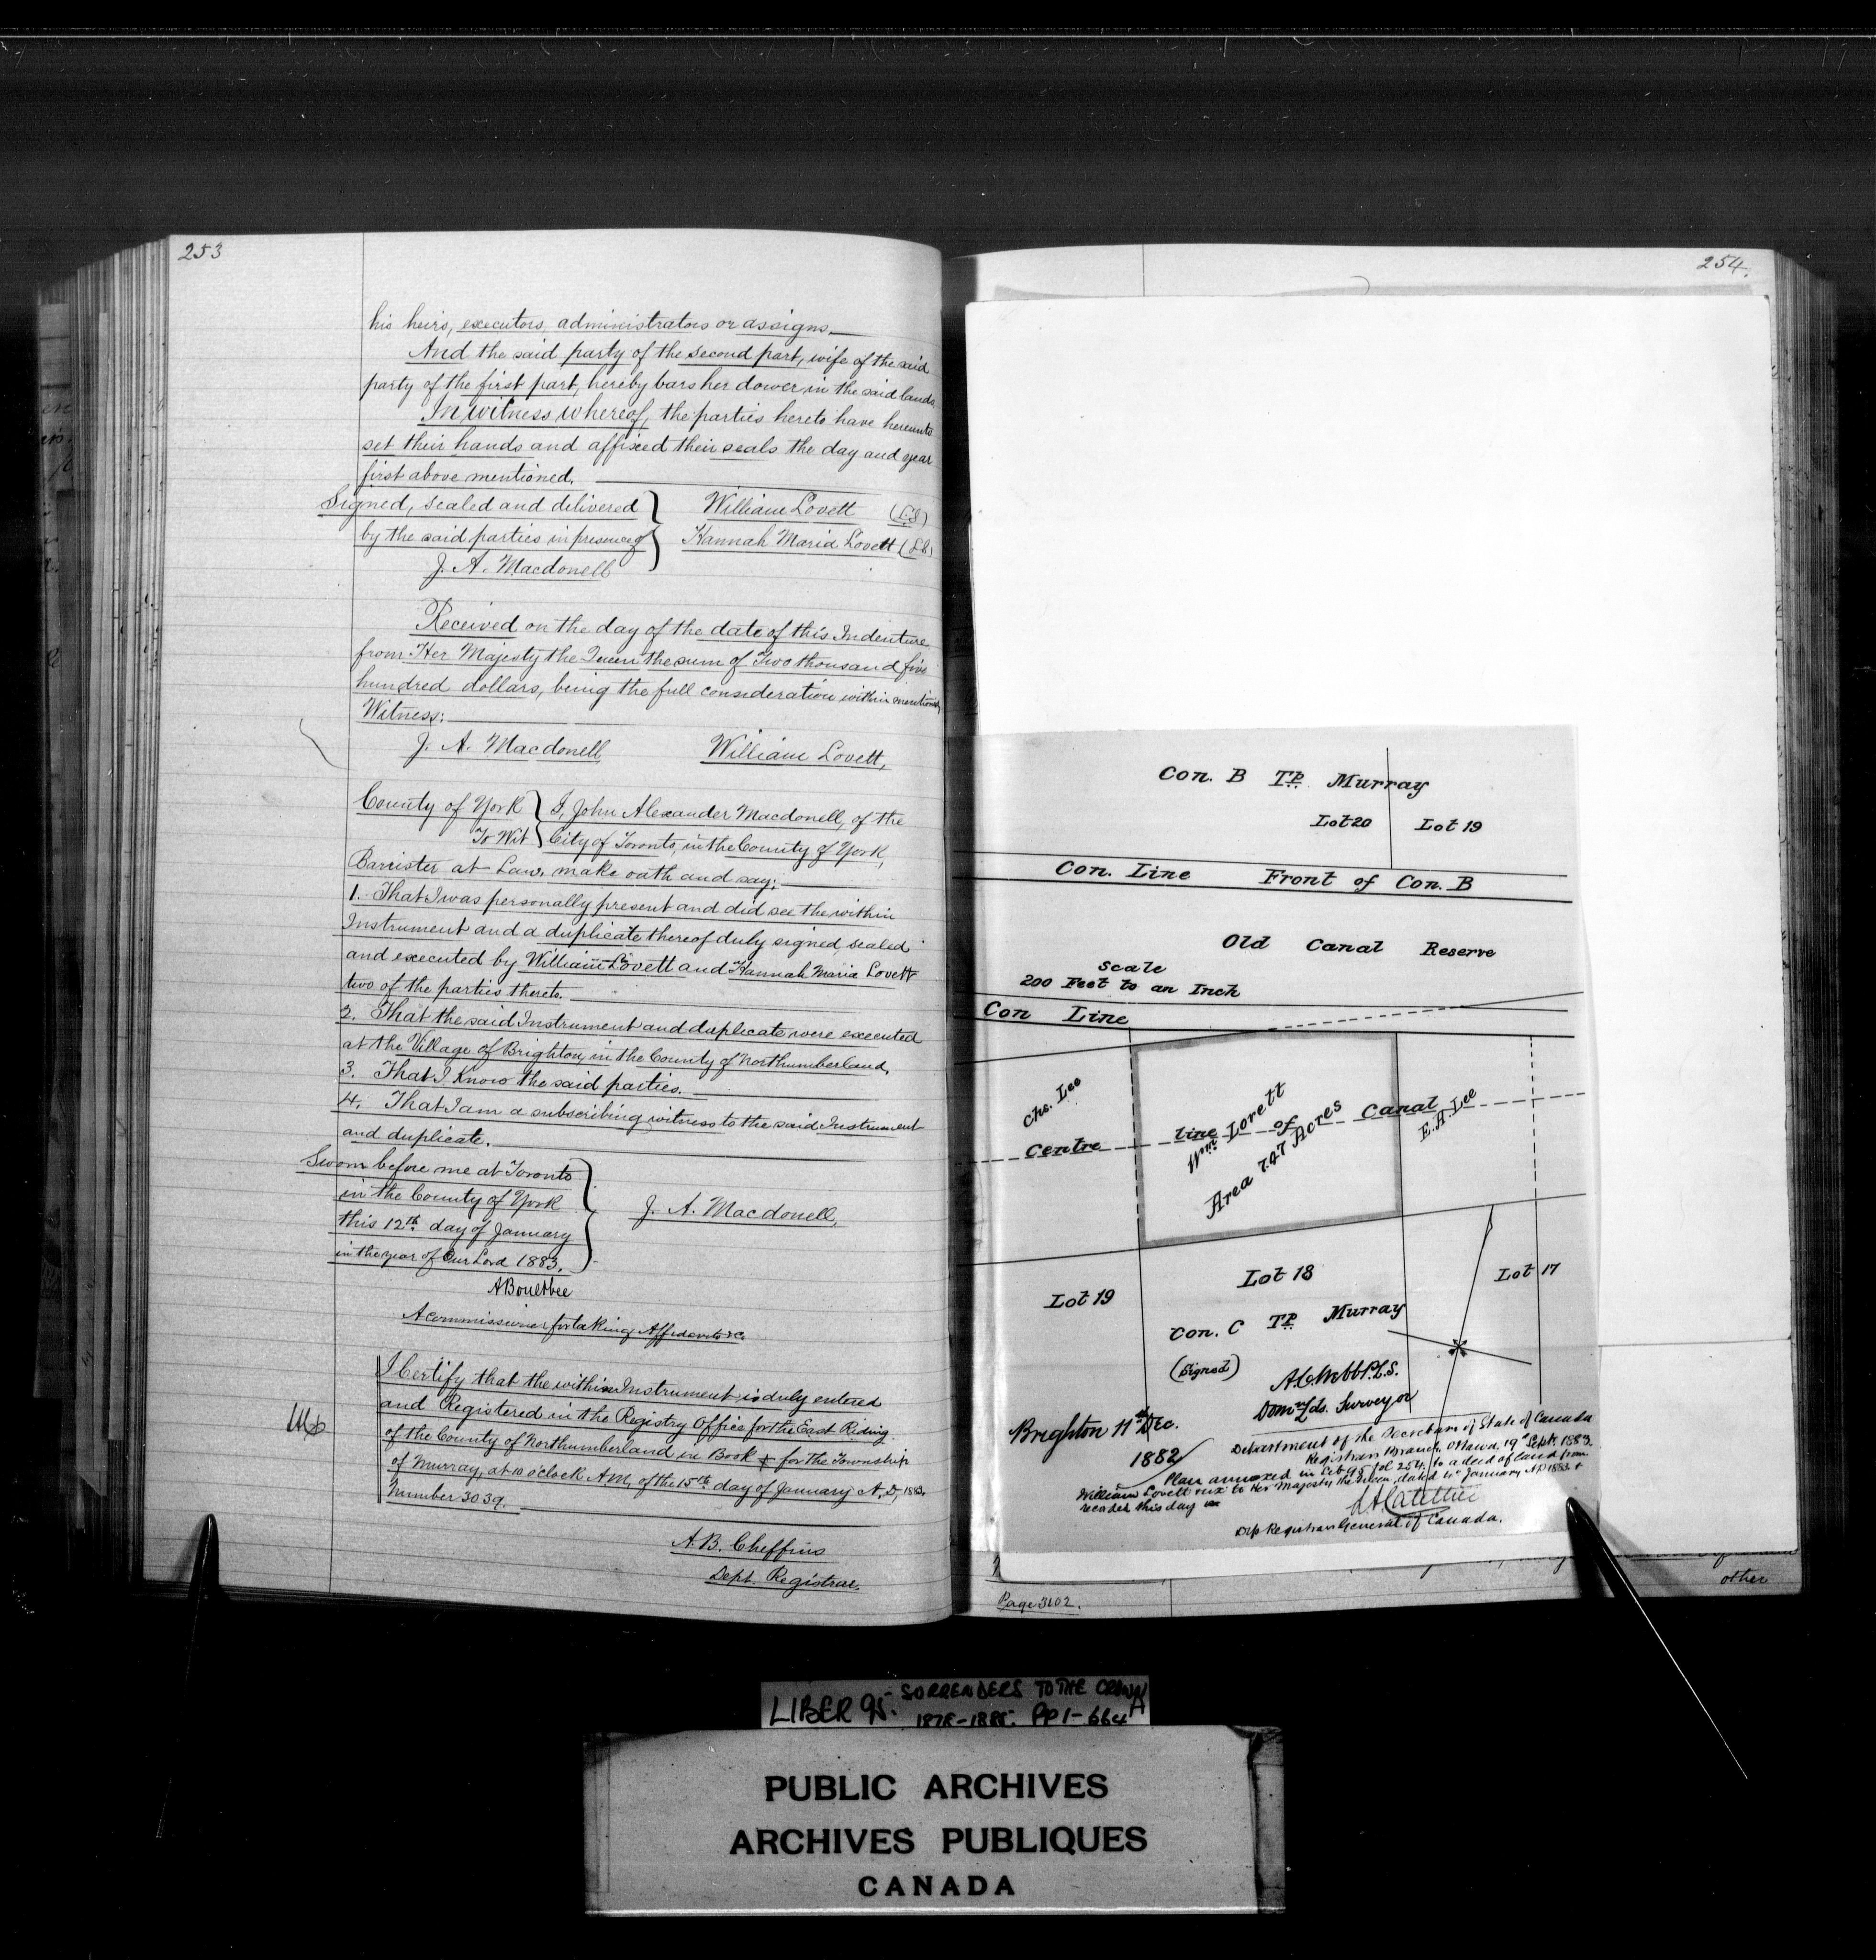 253
his heirs, executors, administrators or assigns.
And the said party of the second part, wife of the said
party of the first part, hereby bars her dower in the said lands
In witness whereof, the parties hereto have hereunto
set their hands and affixed their seals the day and year
first above mentioned.
Signed, sealed and delivered
by the said parties in presence of
J. A. Macdonell
William Lovett (LS)
Hannah Maria Lovett (LS)
Received on the day of the date of this Indenture
from Her Majesty the Queen the sum of Two thousand five
hundred dollars, being the full consideration within mentioned,
Witness:
J. A. Macdonell William Lovett,
County of York
To Wit
I, John Alexander Macdonell, of the
City of Toronto, in the County of York,
Barrister at Law, make oath and say:
1. That I was personally present and did see the within
Instrument and a duplicate thereof duly signed, sealed
and executed by William Lovett and Hannah Maria Lovett
two of the parties thereto.
2. That the said Instrument and duplicate were executed
at the Village of Brighton, in the County of Northumberland,
3. That I know the said parties.
4. That I am a subscribing witness to the said Instrument
and duplicate.
Sworn before me at Toronto
in the County of York
this 12th day of January
in the year of Our Lord 1883.
J. A. Macdonell,
A Boultbee
A Commissioner for taking Affidavits &c
I Certify that the within Instrument is duly entered
and Registered in the Registry Office for the East Riding
of the County of Northumberland in Book for the Township
of Murray, at 10 o'clock A.M. of the 15th day of January A.D, 1883.
Number 3039.
A. B. Cheffins
Dept. Registrar.
254.
Con. B Tp. Murray
Lot 20 Lot 19
Con. Line Front of Con. B
Old Canal Reserve
Scale
200 Feet to an Inch
Con Line
Chs. Lee
Wm. Lovett
Area 7.47 Acres
E. A. Lee
Centre line of Canal
Lot 19
Lot 18
Lot 17
Con. C Tp. Murray
(Signed)
A. C. Webb P.L.S.
Domn. Lds. Surveyor
Brighton 11th Dec.
1882
Department of the Secretary of State of Canada
Registrars Branch, Ottawa, 19th Sept. 1883.
Plan annexed in Lib 95 fol 254. to a deed of land from
William Lovett &ux to Her Majesty the Queen, dated 4th January A.D 1883 &
recorded this day
Dep Registrar General of Canada.
other
Page 3102.
LIBER 95. SURRENDERS TO THE CROWN
1878-1885. PP 1-664
PUBLIC ARCHIVES
ARCHIVES PUBLIQUES
CANADA